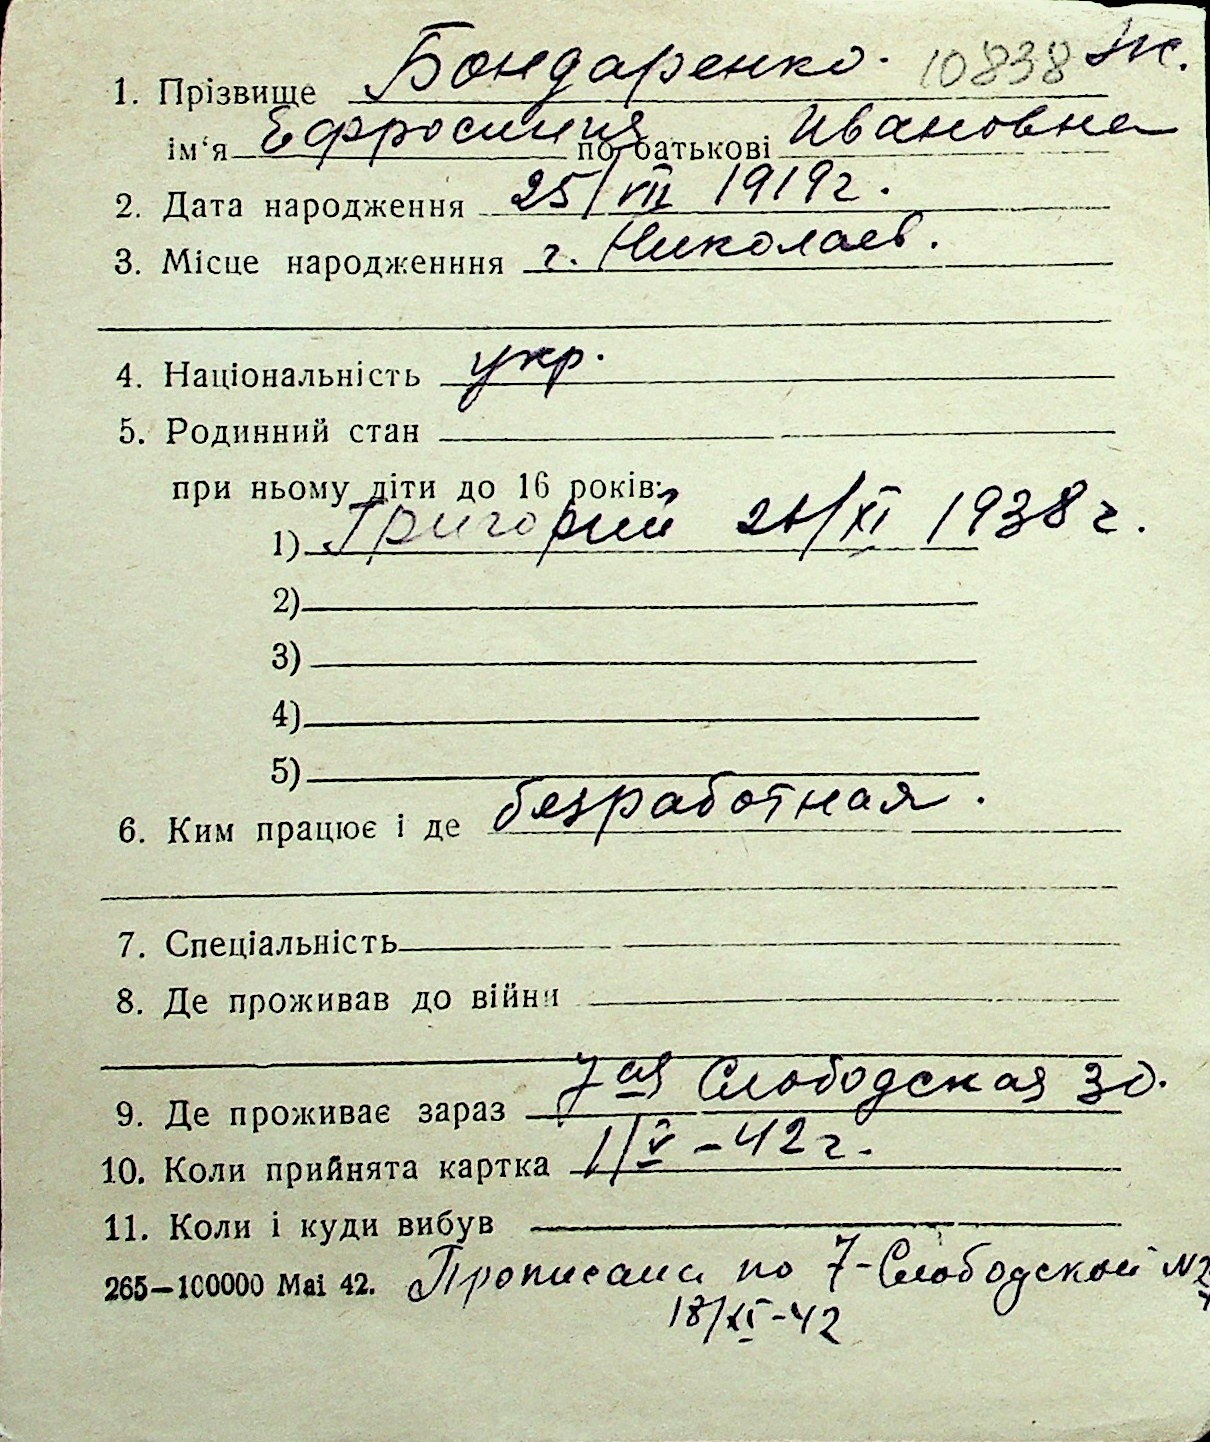 1. Прізвище Бондаренко. 10838 Ж.
ім'я Ефросиния по батькові Ивановна
2. Дата народження 25/VII 1919 г.
3. Місце народженння г. Николаев.
4. Національність укр.
5. Родинний стан
при ньому діти до 16 років:
1) Григорий /XI 1938 г.
2)
3)
4)
5)
6. Ким працює і де безработная.
7. Спеціальність
8. Де проживав до війни
9. Де проживає зараз 7ая Слободская 30.
10. Коли прийнята картка 1/V-42 г.
11. Коли і куди вибув
265—100000 Mai 42. Прописана по 7-Слободской №
18/XI-42